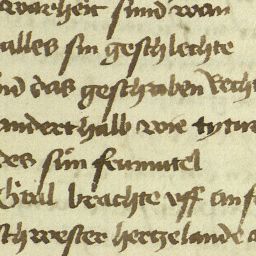 warheit sind wan
alles sin geschlechte
nd das geschriben recht
anderthalb wie tytur
des sun frimutel
Gral brachte vff anf
schwester hertzelande